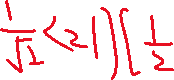 1/√2 <21)[1/2